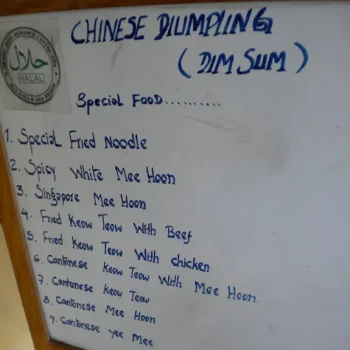 حلال
HALAL
CHINESE DIUMPLING
(DIM SUM)
Special FOOD..........
1. Special Fried Noodle
2. Spicy White Mee Hoon
3. Singapore Mee Hoon
4. Fried Keow Teow With Beef
5. Fried Keow Teow With chicken
6. Cantonese Keow Teow With Mee Hoon
7. Cantonese Keow Teow
8. Cantonese Mee Hoon
9. Cantonese yee Mee